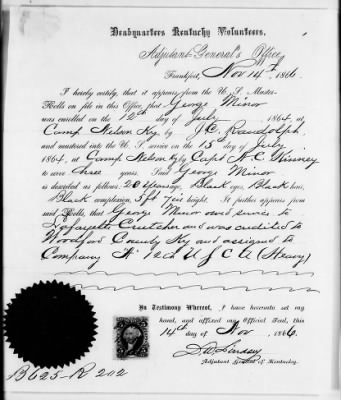 Headquarters Kentucky Volunteers,
Adjutant General's Office,
Frankfort, Nov 14th, 1866.
I hereby certify, that it appears from the U. S. Muster-
Rolls on file in this Office, that George Minor
was enrolled on the 12th day of July 1864, at
Camp Nelson Ky by J. C. Randolph.
and mustered into the U. S. service on the 15 day of July
1864, at Camp Nelson Ky by Capt H. C. Kinney
to serve three years. Said George Minor
is described as follows: 20 years age, Black eyes, Black hair,
Black complexion, 5 ft 7 in height. It further appears from
said Rolls, that George Minor owed service to
Lafayette Crutcher and was credited to
Woodford County Ky and assigned to
Company "F" 12th U S C A (Heavy)
In Testimony Whereof, I have hereunto set my
hand, and affixed my Official Seal, this
14th day of Nov, 1866.
D. W. Lindsey
Adjutant General of Kentucky.
B625-R 202